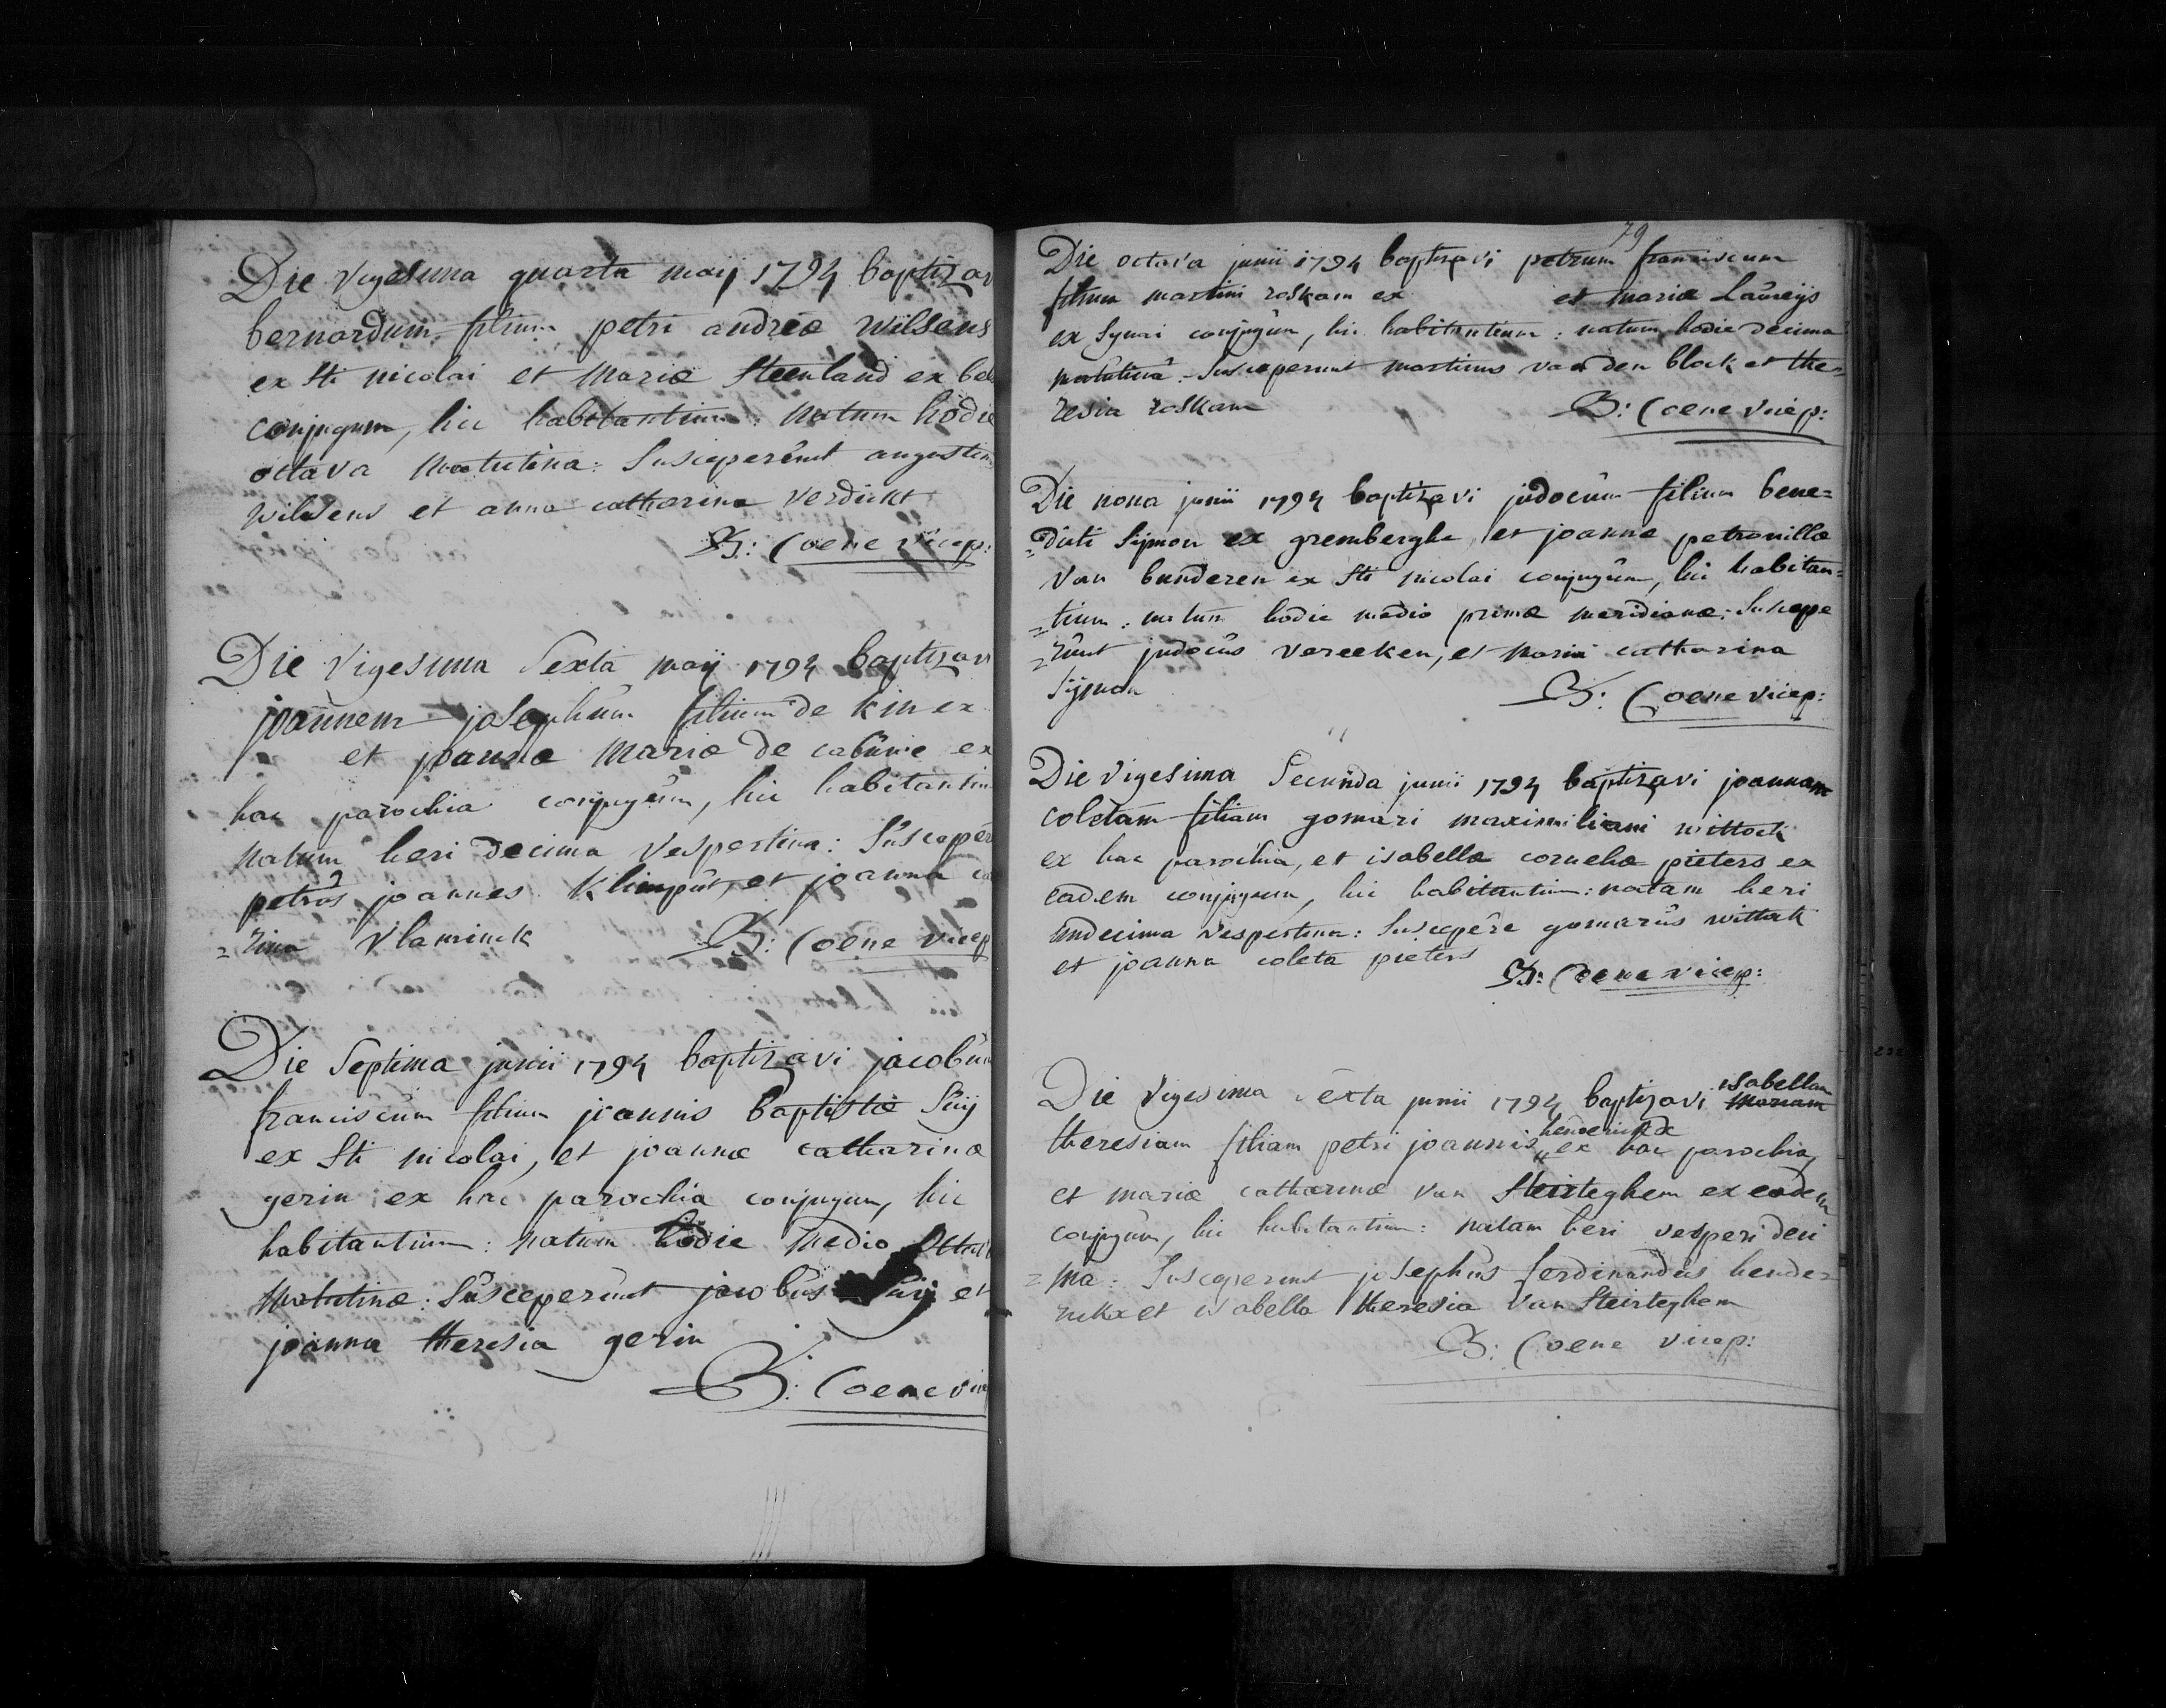 Die vigesima quarta maij 1794 baptizav
bernardum filium petri andreæ wilsens
ex sti nicolai et mariæ Steenland ex bel
conjugum, hic habitantium: natum hodie
octava matutina: susceperunt augustin
wilsens et anna catharina verdickt
B: Coene vicep:
Die vigesima sexta maij 1794 baptizav
joannem josephum filium de kin ex
et joannæ mariæ de cabûne ex
hac parochia conjugum, hic habitantium
natum heri decima vespertina: suscepere
petrus joannes klimpût, et joanna ca
=rina vlaminck
B: Coene vicep
Die septima junii 1794 baptizavi jacobum
franciscum filium joannis baptistæ Suij
ex sti nicolai, et joannæ catharinæ
gerin ex hac parochia conjugum, hic
habitantium: natum hodie medio octavæ
matutinæ: susceperunt jacobus Suij et
joanna theresia gerin
B: Coene vicep
79
Die octava junii 1794 baptizavi petrum franciscum
filium martini roskam ex et mariæ Laureijs
ex Synai conjugum, hic habitantium: natum hodie decima
matutina: susceperunt martinus van den block et the=
resia roskam
B: Coene vicep:
Die nona junii 1794 baptizavi judocum filium bene=
=dicti Sijmon ex gremberghe, et joannæ petronillæ
van bunderen ex sti nicolai conjugum, hic habitan=
=tium: natum hodie medio primæ meridianæ: suscepe
=runt judocus vereeken, et maria catharina
Sijmon
B: Coene vicep:
Die vigesima secunda junii 1794 baptizavi joannam
coletam filiam gomari maximiliani wittock
ex hac parochia, et isabellæ corneliæ pieters ex
eadem conjugum, hic habitantium: natam heri
undecima vespertina: suscepere gomarus wittock
et joanna coleta pieters
B: Coene vicep:
isabellam
Die vigesima sexta junii 1794 baptizavi mariam
henderickx
theresiam filiam petri joannis ex hac parochia,
et mariæ catharinæ van Steirteghem ex eadem
conjugum, hic habitantium: natam heri vesperi deci
=ma: susceperunt josephus ferdinandus hende=
rickx et isabella theresia van Steirteghem
B: Coene vicep: